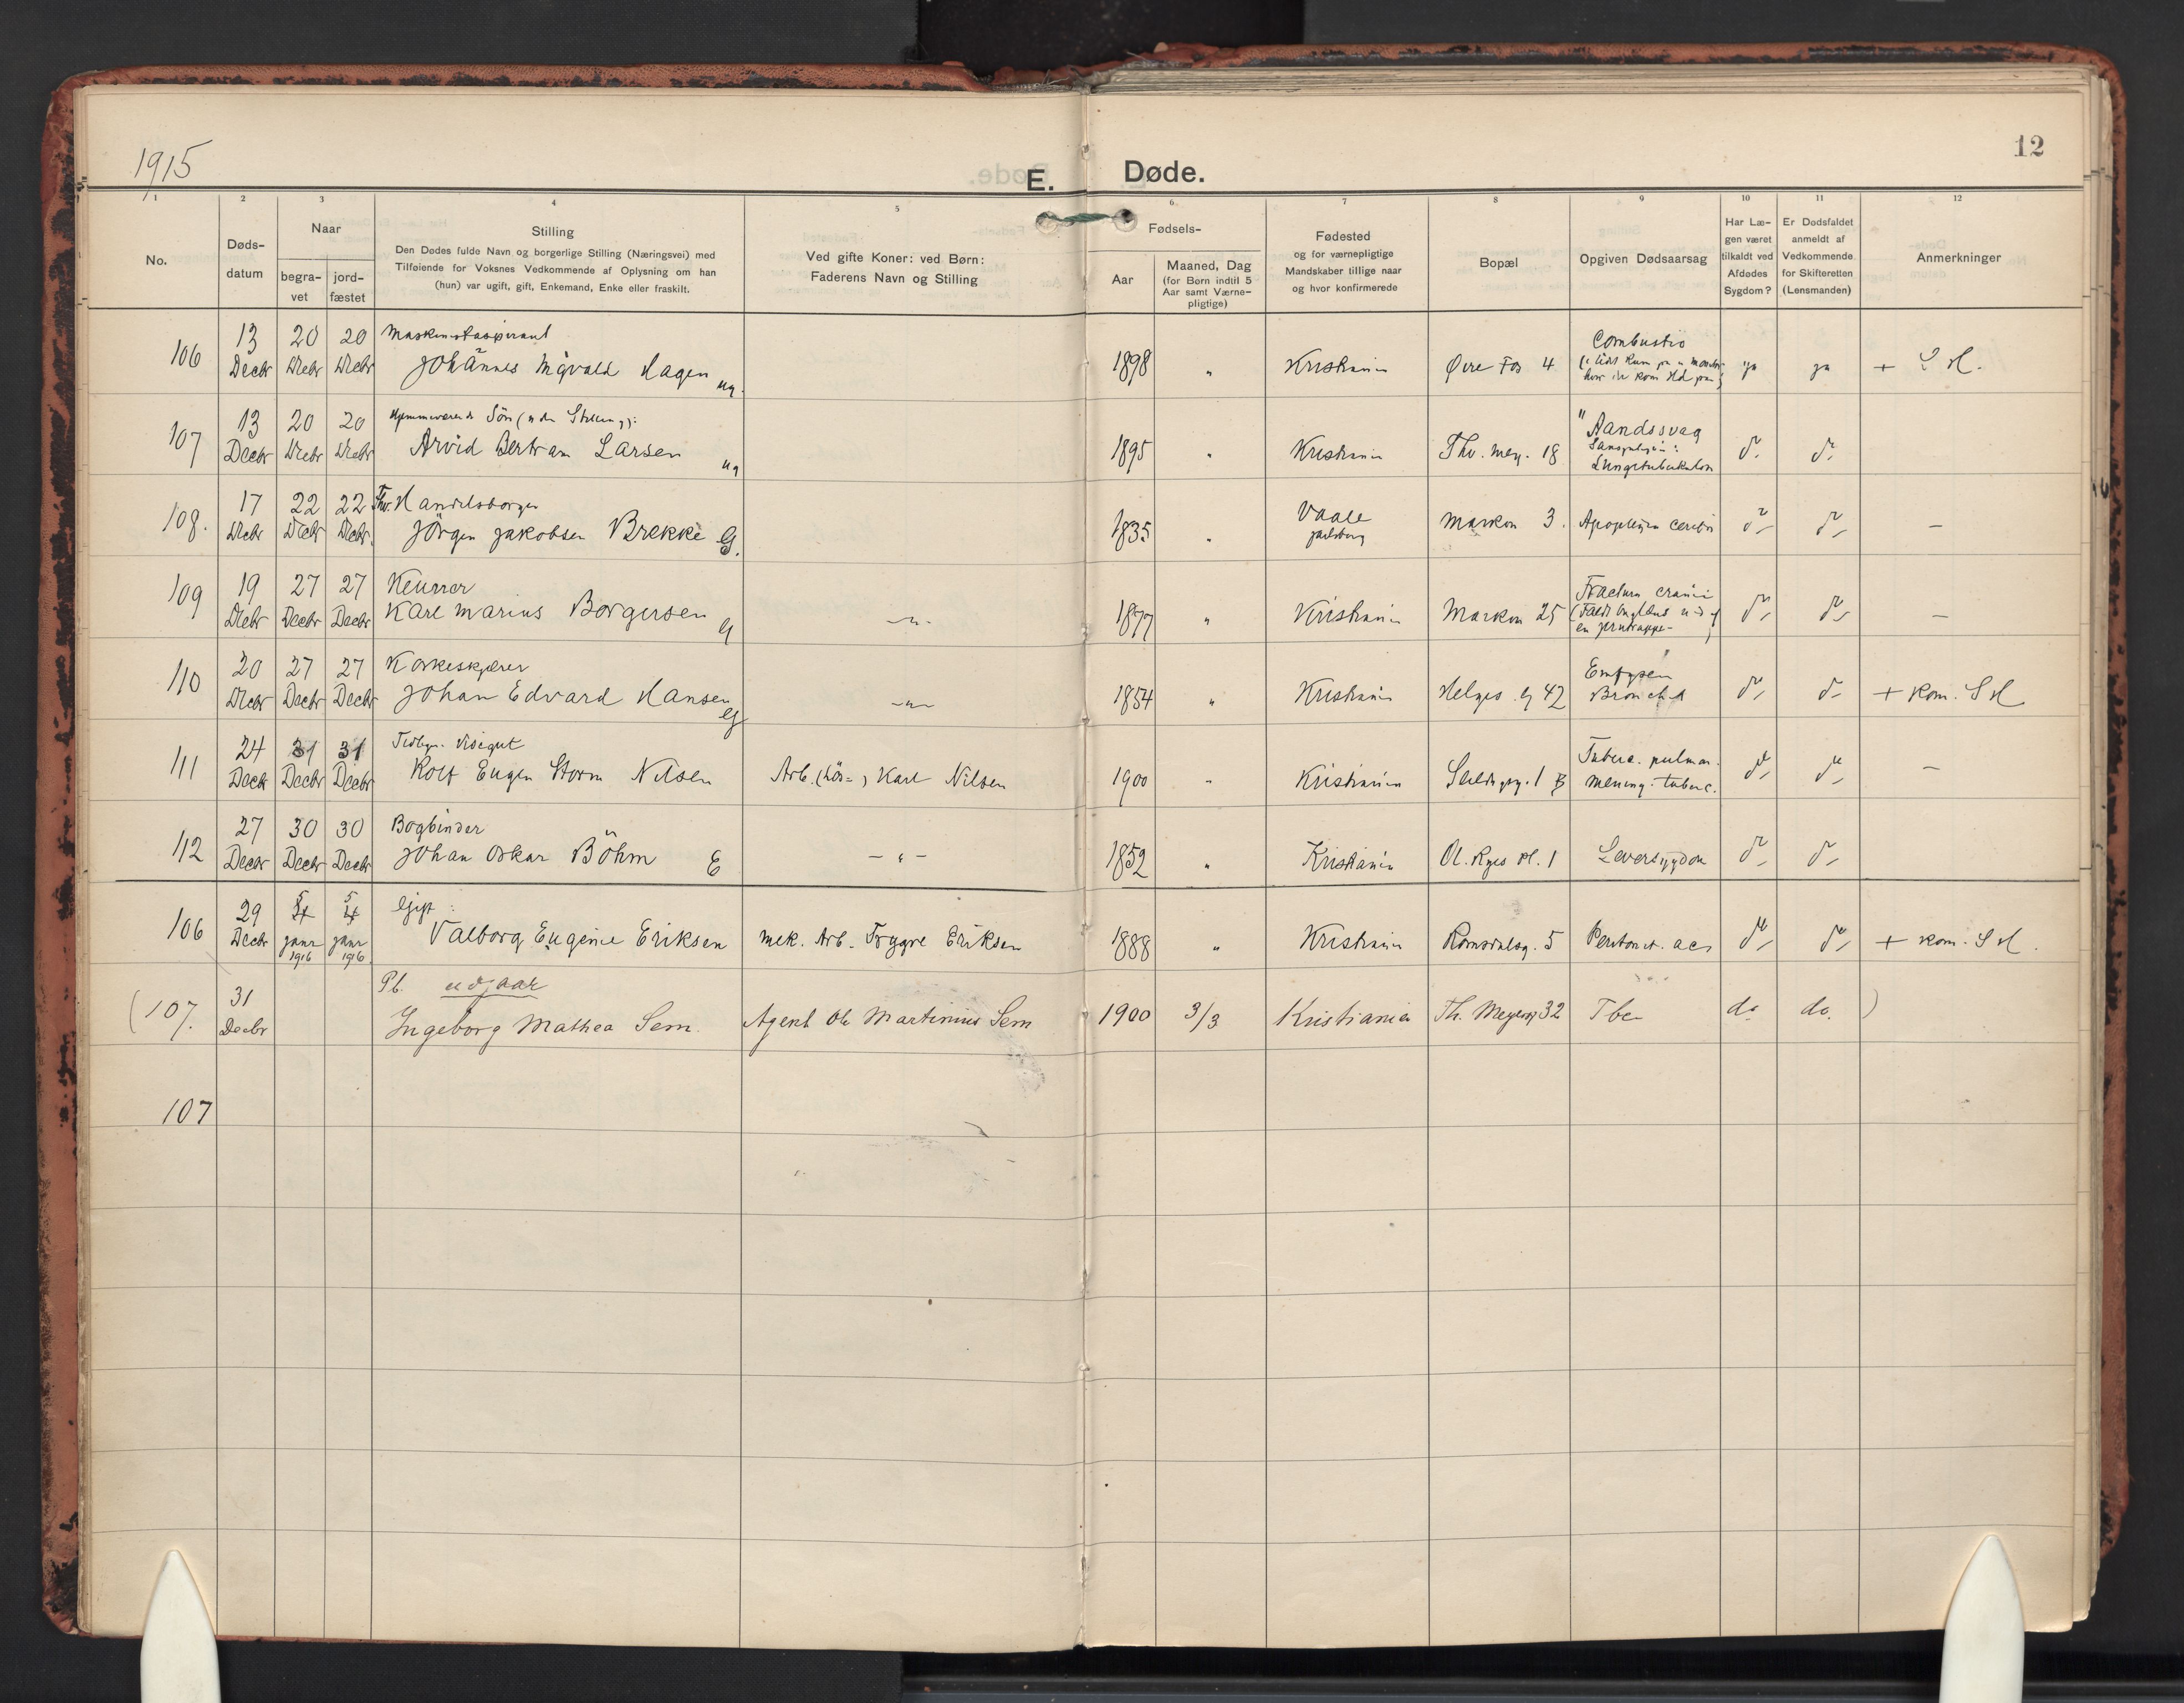 12
1915
E. Døde.
1 2 3 4 5 6 7 8 9 10 11 12
No.
Døds-
datum
Naar
begra-
vet
jord-
fæstet
Stilling
Den Dødes fulde Navn og borgerlige Stilling (Næringsvei) med
Tilføiende for Voksnes Vedkommende af Oplysning om han
(hun) var ugift, gift, Enkemand, Enke eller fraskilt.
Ved gifte Koner: ved Børn:
Faderens Navn og Stilling
Fødsels-
Aar
Maaned, Dag
(for Børn indtil 5
Aar samt Værne-
pligtige)
Fødested
og for værnepligtige
Mandskaber tillige naar
og hvor konfirmerede
Bopæl
Opgiven Dødsaarsag
Har Læ-
gen været
tilkaldt ved
Afdødes
Sygdom?
Er Dødsfaldet
anmeldt af
Vedkommende
for Skifteretten
(Lensmanden)
Anmerkninger
106 13 Decbr 20 Decbr 20 Decbr Maskinistaspirant
Johannes Ingvald Hagen ug. 1898 " Kristiania Øvre Fos 4 Combustio ja ja +
107 13 Decbr 20 Decbr 20 Decbr Hjemmeværende Sön (uden Stilling):
Arvid Bertram Larsen ug 1895 " Kristiania Th. Mey. 18 "Aandssvag
Lungetuberkulose
108. 17 Decbr 22 Decbr 22 Decbr. Fhv. Handelsborger
Jörgen Jakobsen Brekke G. 1835 " Vaale
Jarlsberg Markvn 3. Apoplexia cerebri —
109 19 Decbr 27 Decbr 27 Decbr Keurrer
Karl Marius Borgersen G —"— 1877 " Kristiania Markvn 25 Fractura cranii —
110 20 Decbr 27 Decbr 27 Decbr Korkeskjærer
Johan Edvard Hansen G —"— 1854 " Kristiania Helges g 42 Emfysem
Bronchit + kom.
111 24 Decbr 31 Decbr 31 Decbr Tidligr. Visergut
Rolf Eugen Storm Nilsen Arb. (Løs=) Karl Nilsen 1900 " Kristiania 1 B Tuberc. pulmon.
Mening. tuberc. —
112 27 Decbr 30 Decbr 30 Decbr Bogbinder
Johan Oskar Böhm E —"— 1852 " Kristiania Ol. Ryes Pl. 1 Leversygdom
106 29 Decbr 5 Janr 1916 5 Janr 1916 Gift:
Valborg Eugenie Eriksen mek. Arb. Trygve Eriksen 1888 " Kristiania Romsdalsg. 5 Peritonit. ac. + kom.
(107. 31 Decbr Pb. udgaar
Ingeborg Mathea Sem. Agent Ole Martinius Sem 1900 3/3 Kristiania Th. Meyersg 32 Tbc do do. )
107